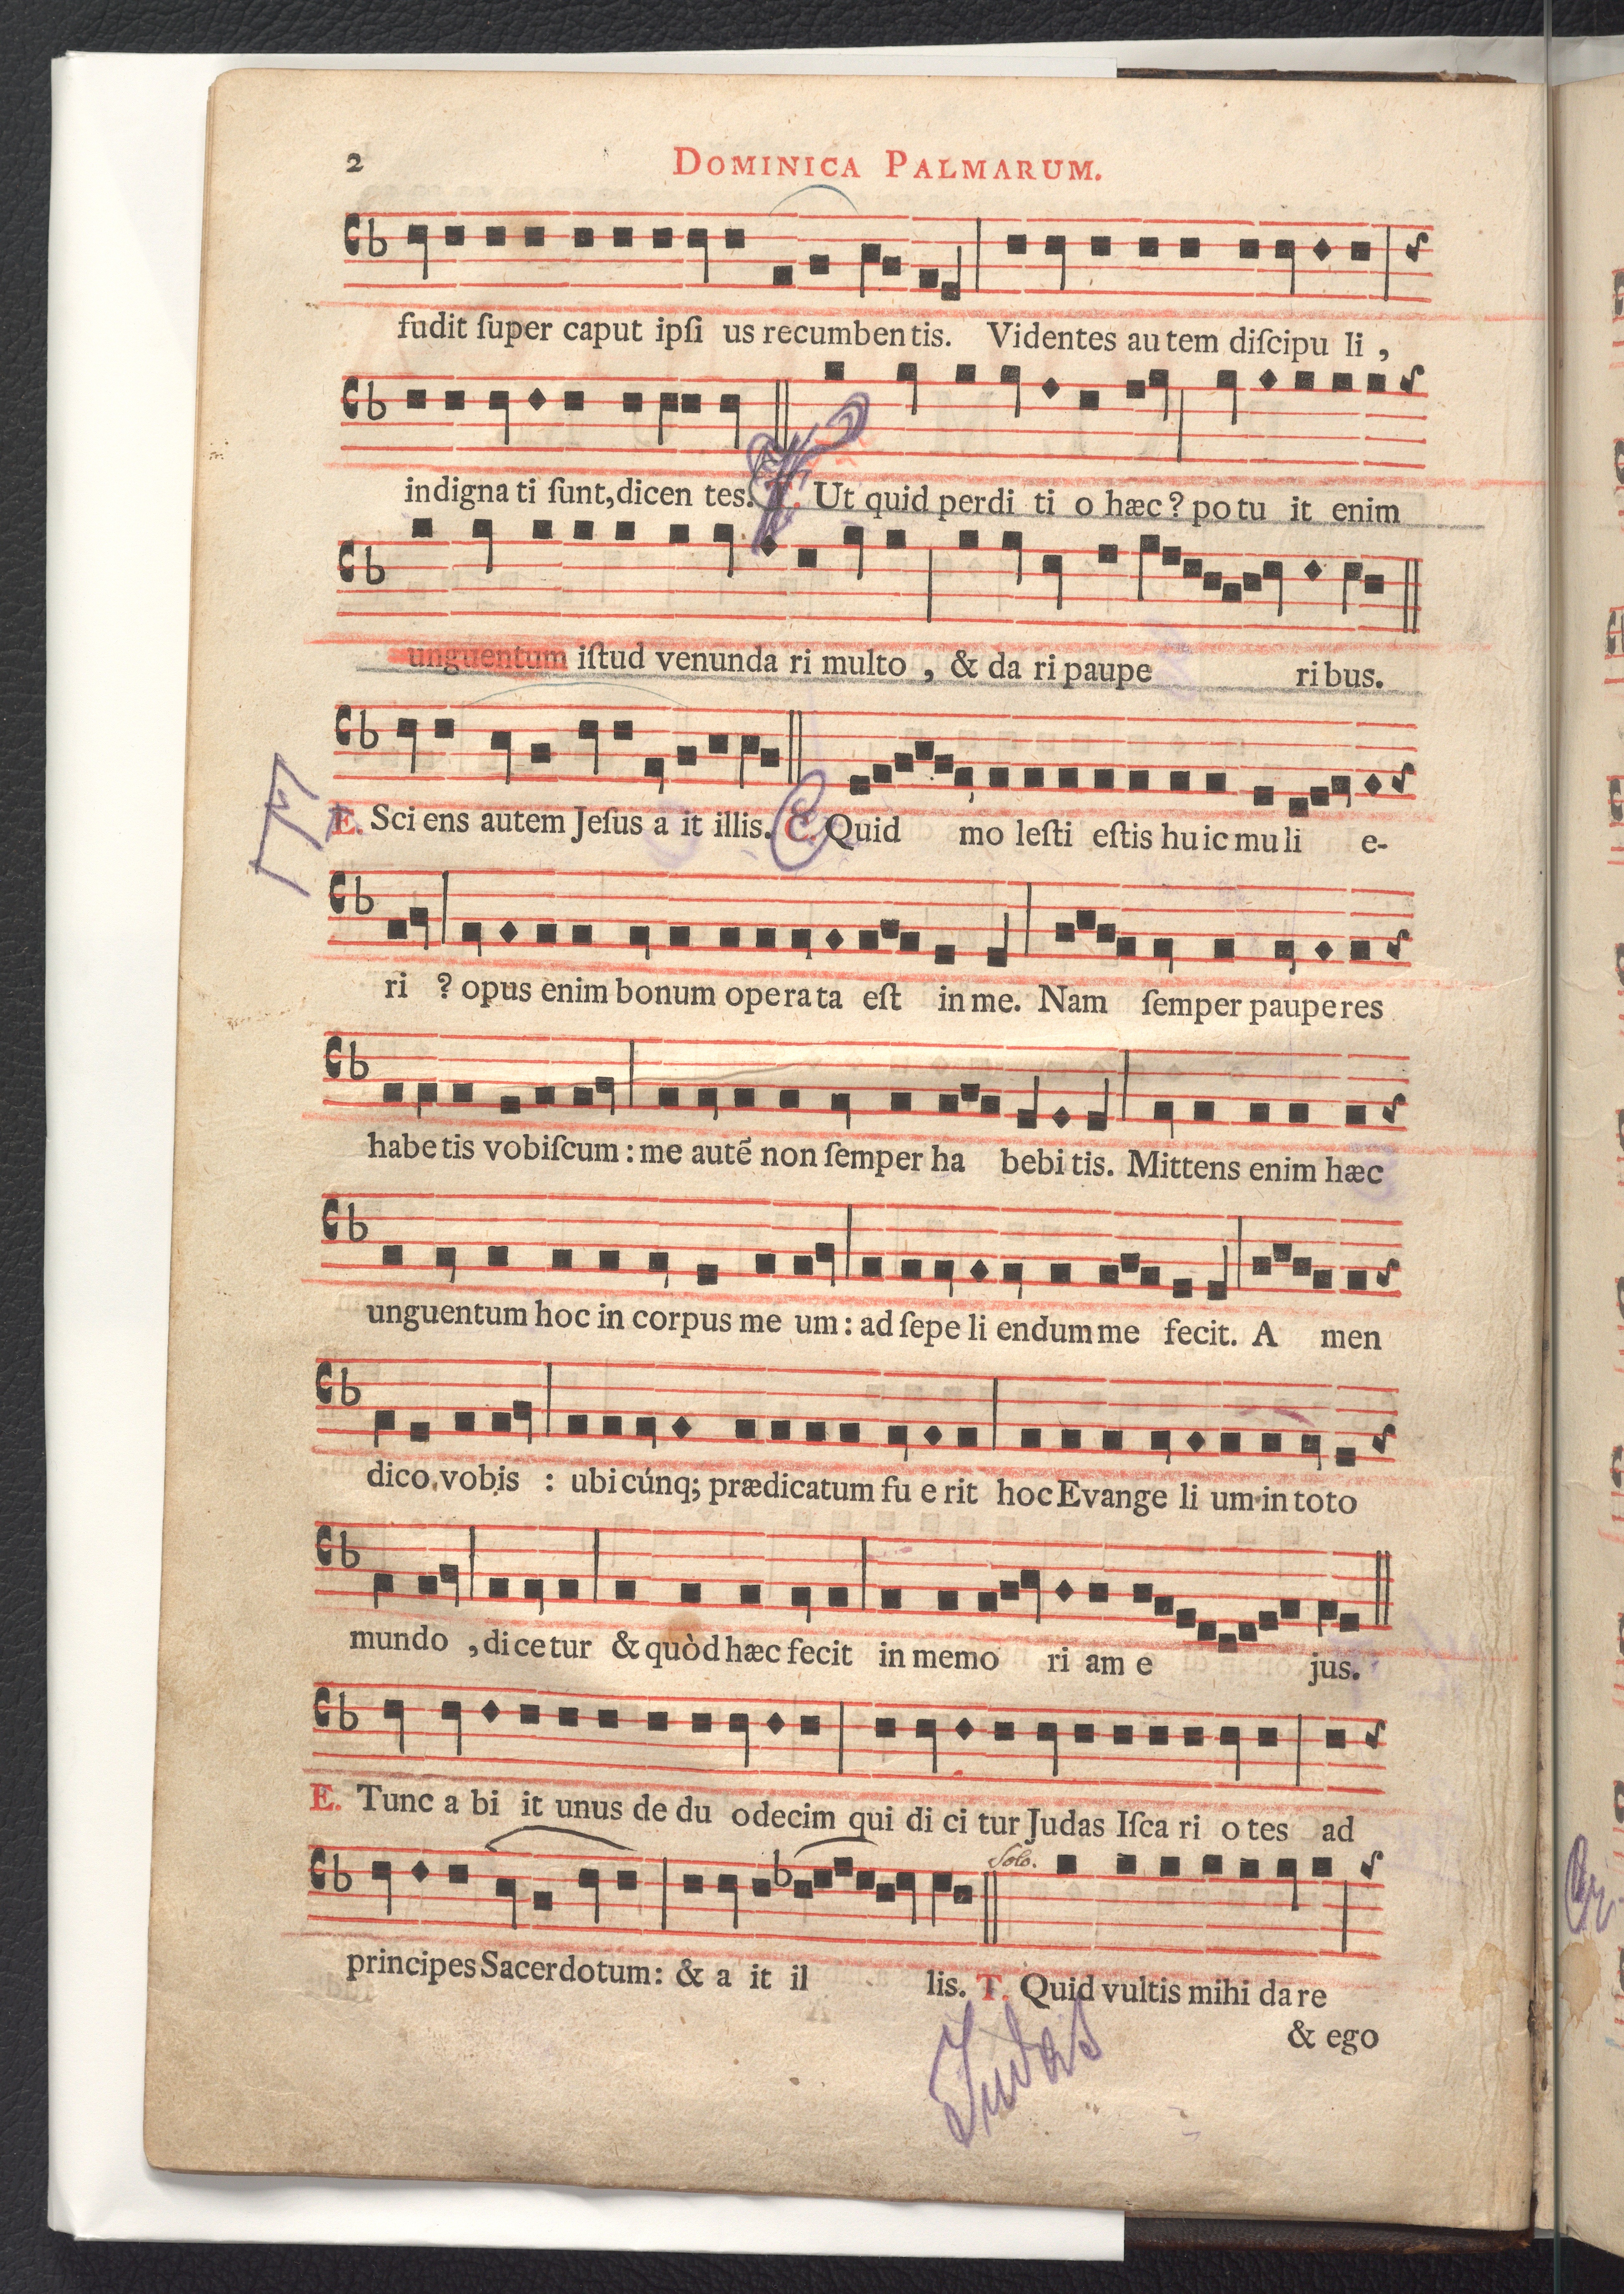 2 DOMINICA PALMARUM.
fudit ſuper caput ipſi us recumbentis. Videntes au tem diſcipu li ,
indigna ti ſunt, dicen tes. T. Ut quid perdi ti o hæc ? po tu it enim
unguentum iſtud venunda ri multo , & da ri paupe ri bus.
E. Sci ens autem Jeſus a it illis. C. Quid mo leſti eſtis hu ic mu li e-
ri ? opus enim bonum opera ta eſt in me. Nam ſemper pauperes
habe tis vobiſcum : me autē non ſemper ha bebi tis. Mittens enim hæc
unguentum hoc in corpus me um : ad ſepe li endum me fecit. A men
dico vobis : ubi cúnq; prædicatum fu e rit hoc Evange li um in toto
mundo , di ce tur & quòd hæc fecit in memo ri am e jus.
E. Tunc a bi it unus de du odecim qui di ci tur Judas Iſca ri o tes ad
Solo.
principes Sacerdotum : & a it il lis. T. Quid vultis mihi da re
& ego
Judas